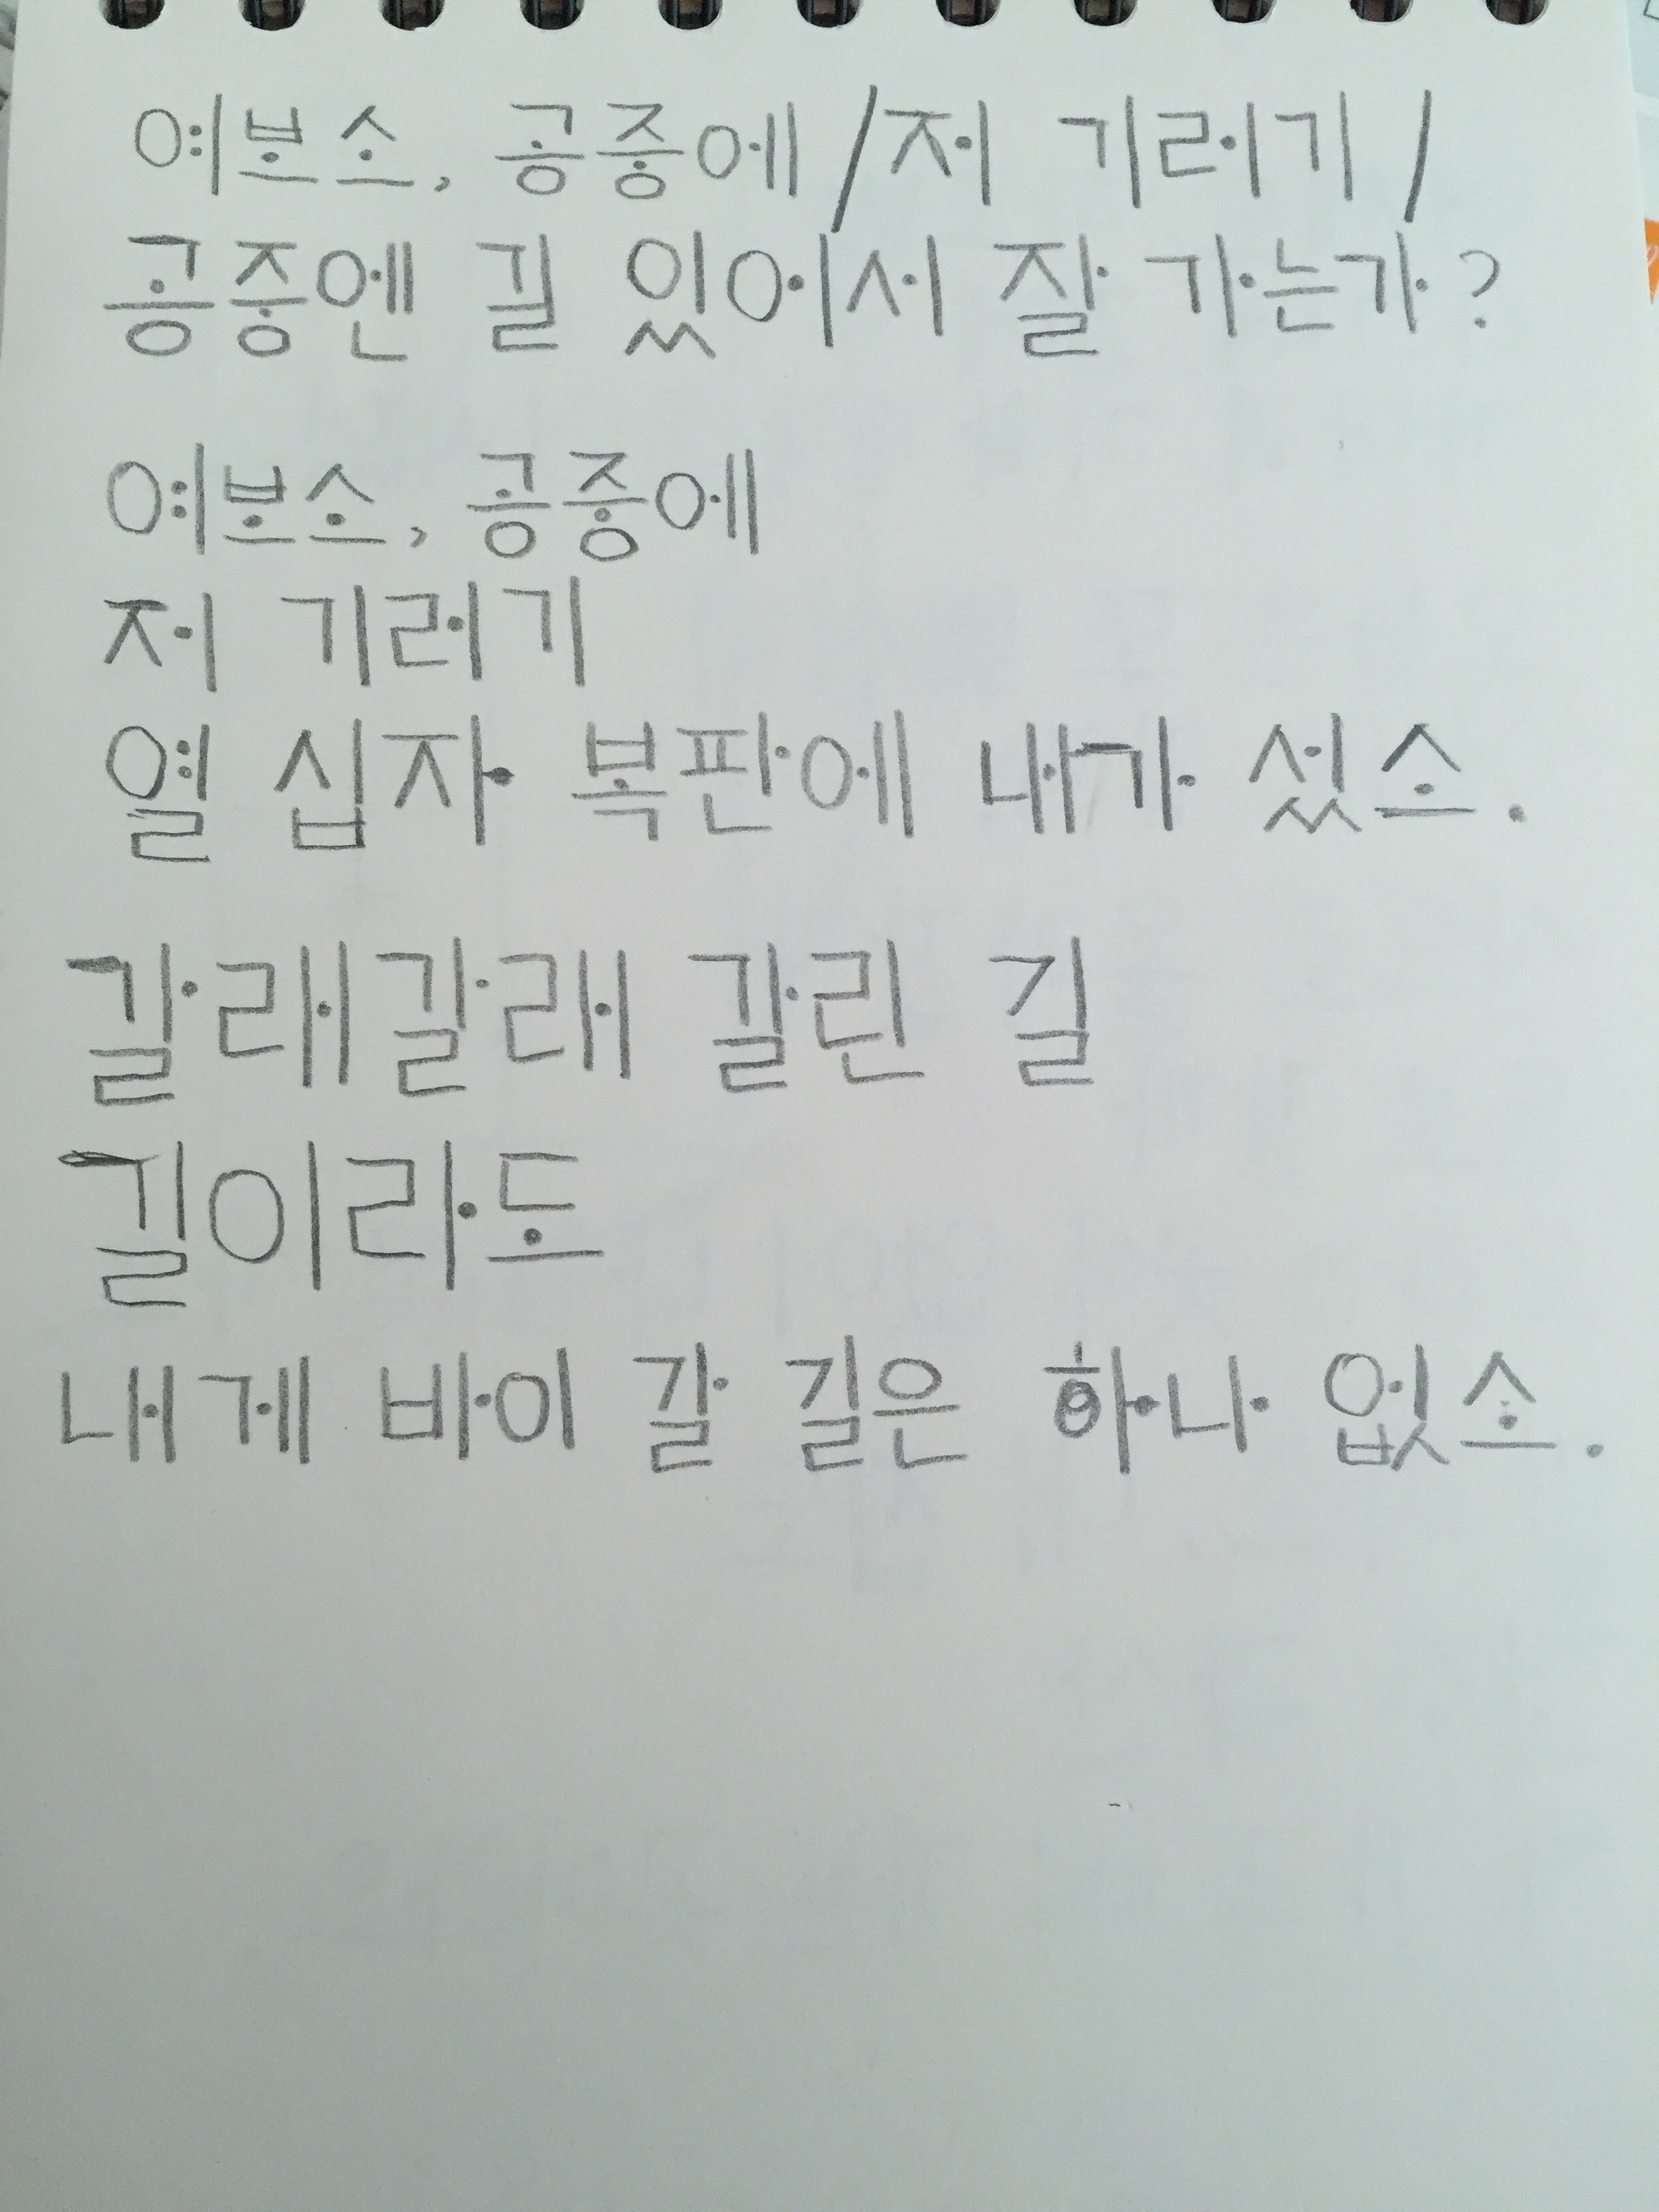 여보소, 공중에 / 저 기러기 /
공중엔 길 있어서 잘 가는가?
여보소, 공중에
저 기러기
열 십자 복판에 내가 섰소.
갈래갈래 갈린 길
길이라도
내게 바이 갈 길은 하나 없소.